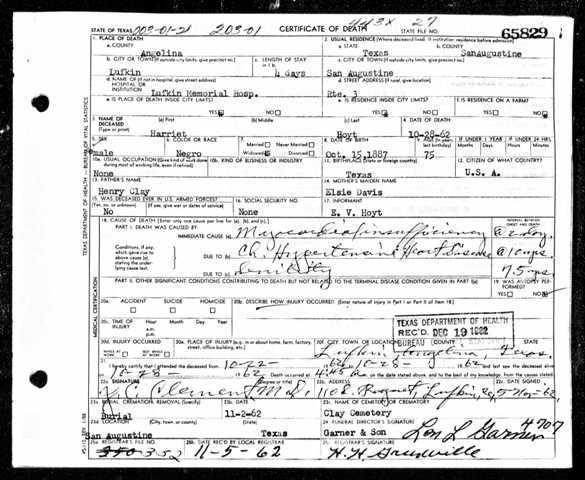 443X 27
STATE OF TEXAS 203-01-21 203-01 CERTIFICATE OF DEATH STATE FILE NO. 65829
1. PLACE OF DEATH 2. USUAL RESIDENCE (Where deceased lived. If institution: residence before admission)
a. COUNTY a. STATE b. COUNTY
Angelina Texas SanAugustine
b. CITY OR TOWN (If outside city limits, give precinct no.) c. LENGTH OF STAY in 1 b. c. CITY OR TOWN (If outside city limits, give precinct no.)
Lufkin 4 days San Augustine
d. NAME OF (If not in hospital, give street address) HOSPITAL OR INSTITUTION d. STREET ADDRESS (If rural, give location)
Lufkin Memorial Hosp. Rte. 3
e. IS PLACE OF DEATH INSIDE CITY LIMITS? e. IS RESIDENCE INSIDE CITY LIMITS? f. IS RESIDENCE ON A FARM?
YES NO YES NO YES NO
3. NAME OF DECEASED (Type or print) (a) First (b) Middle (c) Last 4. DATE OF DEATH
Harriet Hoyt 10-28-62
5. SEX 6. COLOR OR RACE 7. Married Never Married Widowed Divorced 8. DATE OF BIRTH 9. AGE (In years last birthday) IF UNDER 1 YEAR IF UNDER 24 HRS.
male Negro Oct. 15, 1887 75 Months Days Hours Min.
10a. USUAL OCCUPATION (Give kind of work done during most of working life, even if retired) 10b. KIND OF BUSINESS OR INDUSTRY 11. BIRTHPLACE (State or foreign country) 12. CITIZEN OF WHAT COUNTRY?
None Texas U. S. A.
13. FATHER'S NAME 14. MOTHER'S MAIDEN NAME
Henry Clay Elsie Davis
15. WAS DECEASED EVER IN U.S. ARMED FORCES? 16. SOCIAL SECURITY NO. 17. INFORMANT
(Yes, no, or unknown) (If yes, give war or dates of service)
No None E. V. Hoyt
18. CAUSE OF DEATH [Enter only one cause per line for (a), (b), and (c).] INTERVAL BETWEEN ONSET AND DEATH
PART I. DEATH WAS CAUSED BY:
IMMEDIATE CAUSE (a) Myocardial insufficiency @ 2 day
Conditions, if any, which gave rise to above cause (a) stating the underlying cause last.
DUE TO (b) Ch. Hypertensive Heart Disease @ 10 yrs
DUE TO (c) Senility 75 yrs
PART II. OTHER SIGNIFICANT CONDITIONS CONTRIBUTING TO DEATH BUT NOT RELATED TO THE TERMINAL DISEASE CONDITION GIVEN IN PART I(a) 19. WAS AUTOPSY PERFORMED?
YES NO
20a. ACCIDENT SUICIDE HOMICIDE 20b. DESCRIBE HOW INJURY OCCURRED. (Enter nature of injury in Part I or Part II of item 18)
20c. TIME OF INJURY Hour Month Day Year
a.m.
p.m.
TEXAS DEPARTMENT OF HEALTH
REC'D. DEC 19 1962
BUREAU
20d. INJURY OCCURRED WHILE AT WORK NOT WHILE AT WORK 20e. PLACE OF INJURY (e.g. in or about home, farm, factory, street, office building, etc.) 20f. CITY, TOWN, OR LOCATION COUNTY STATE
Lufkin Angelina, Texas
21. I hereby certify that I attended the deceased from 10-22- 62 10-28- 62 and last saw the deceased alive
on 10-28- 62 Death occurred at on the date stated above, and to the best of my knowledge, from the causes stated.
22a. SIGNATURE (Degree or title) 22b. ADDRESS 22c. DATE SIGNED
Clement M.D. Lufkin 5-Nov-62
23a. BURIAL, CREMATION, REMOVAL (Specify) 23b. DATE 23c. NAME OF CEMETERY OR CREMATORY
Burial 11-2-62 Clay Cemetery
23d. LOCATION (City, town, or county) (State) 24. FUNERAL DIRECTOR'S SIGNATURE
San Augustine Texas Garner & Son Lon L Garner 4707
25a. REGISTRAR'S FILE NO. 25b. DATE REC'D BY LOCAL REGISTRAR 25c. REGISTRAR'S SIGNATURE
352 11-5-62
TEXAS DEPARTMENT OF HEALTH — BUREAU OF VITAL STATISTICS
MEDICAL CERTIFICATION